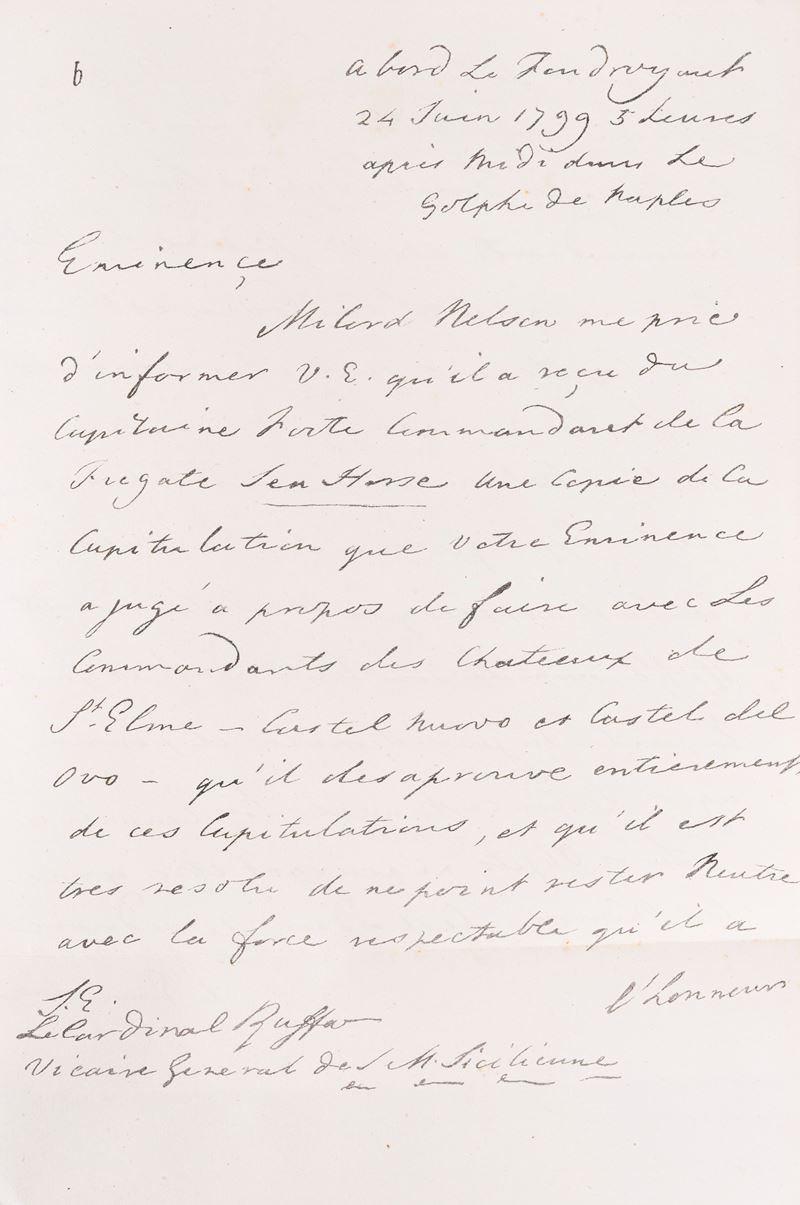 6
a bord Le Foudroyant
24 Juin 1799 5 heures
après Midi dans Le
Golphe de Naples
Eminençe
Milord Nelson me prie
d'informer V.E. qu'il a reçu du
Capitaine Foote Commandant de la
Fregate Sea Horse une Copie de la
Capitulation que Votre Eminence
a jugé a propos de faire avec Les
Commandants des Chateaux de
St. Elme - Castel Nuovo et Castel del
Ovo - qu'il desaprouve entierement
de ces Capitulations, et qu'il est
tres resolu de ne point rester Neutre
avec la force respectable qu'il a
l'honneur
S.E.
Le Cardinal Ruffo
Vicaire General de S M. Sicilienne